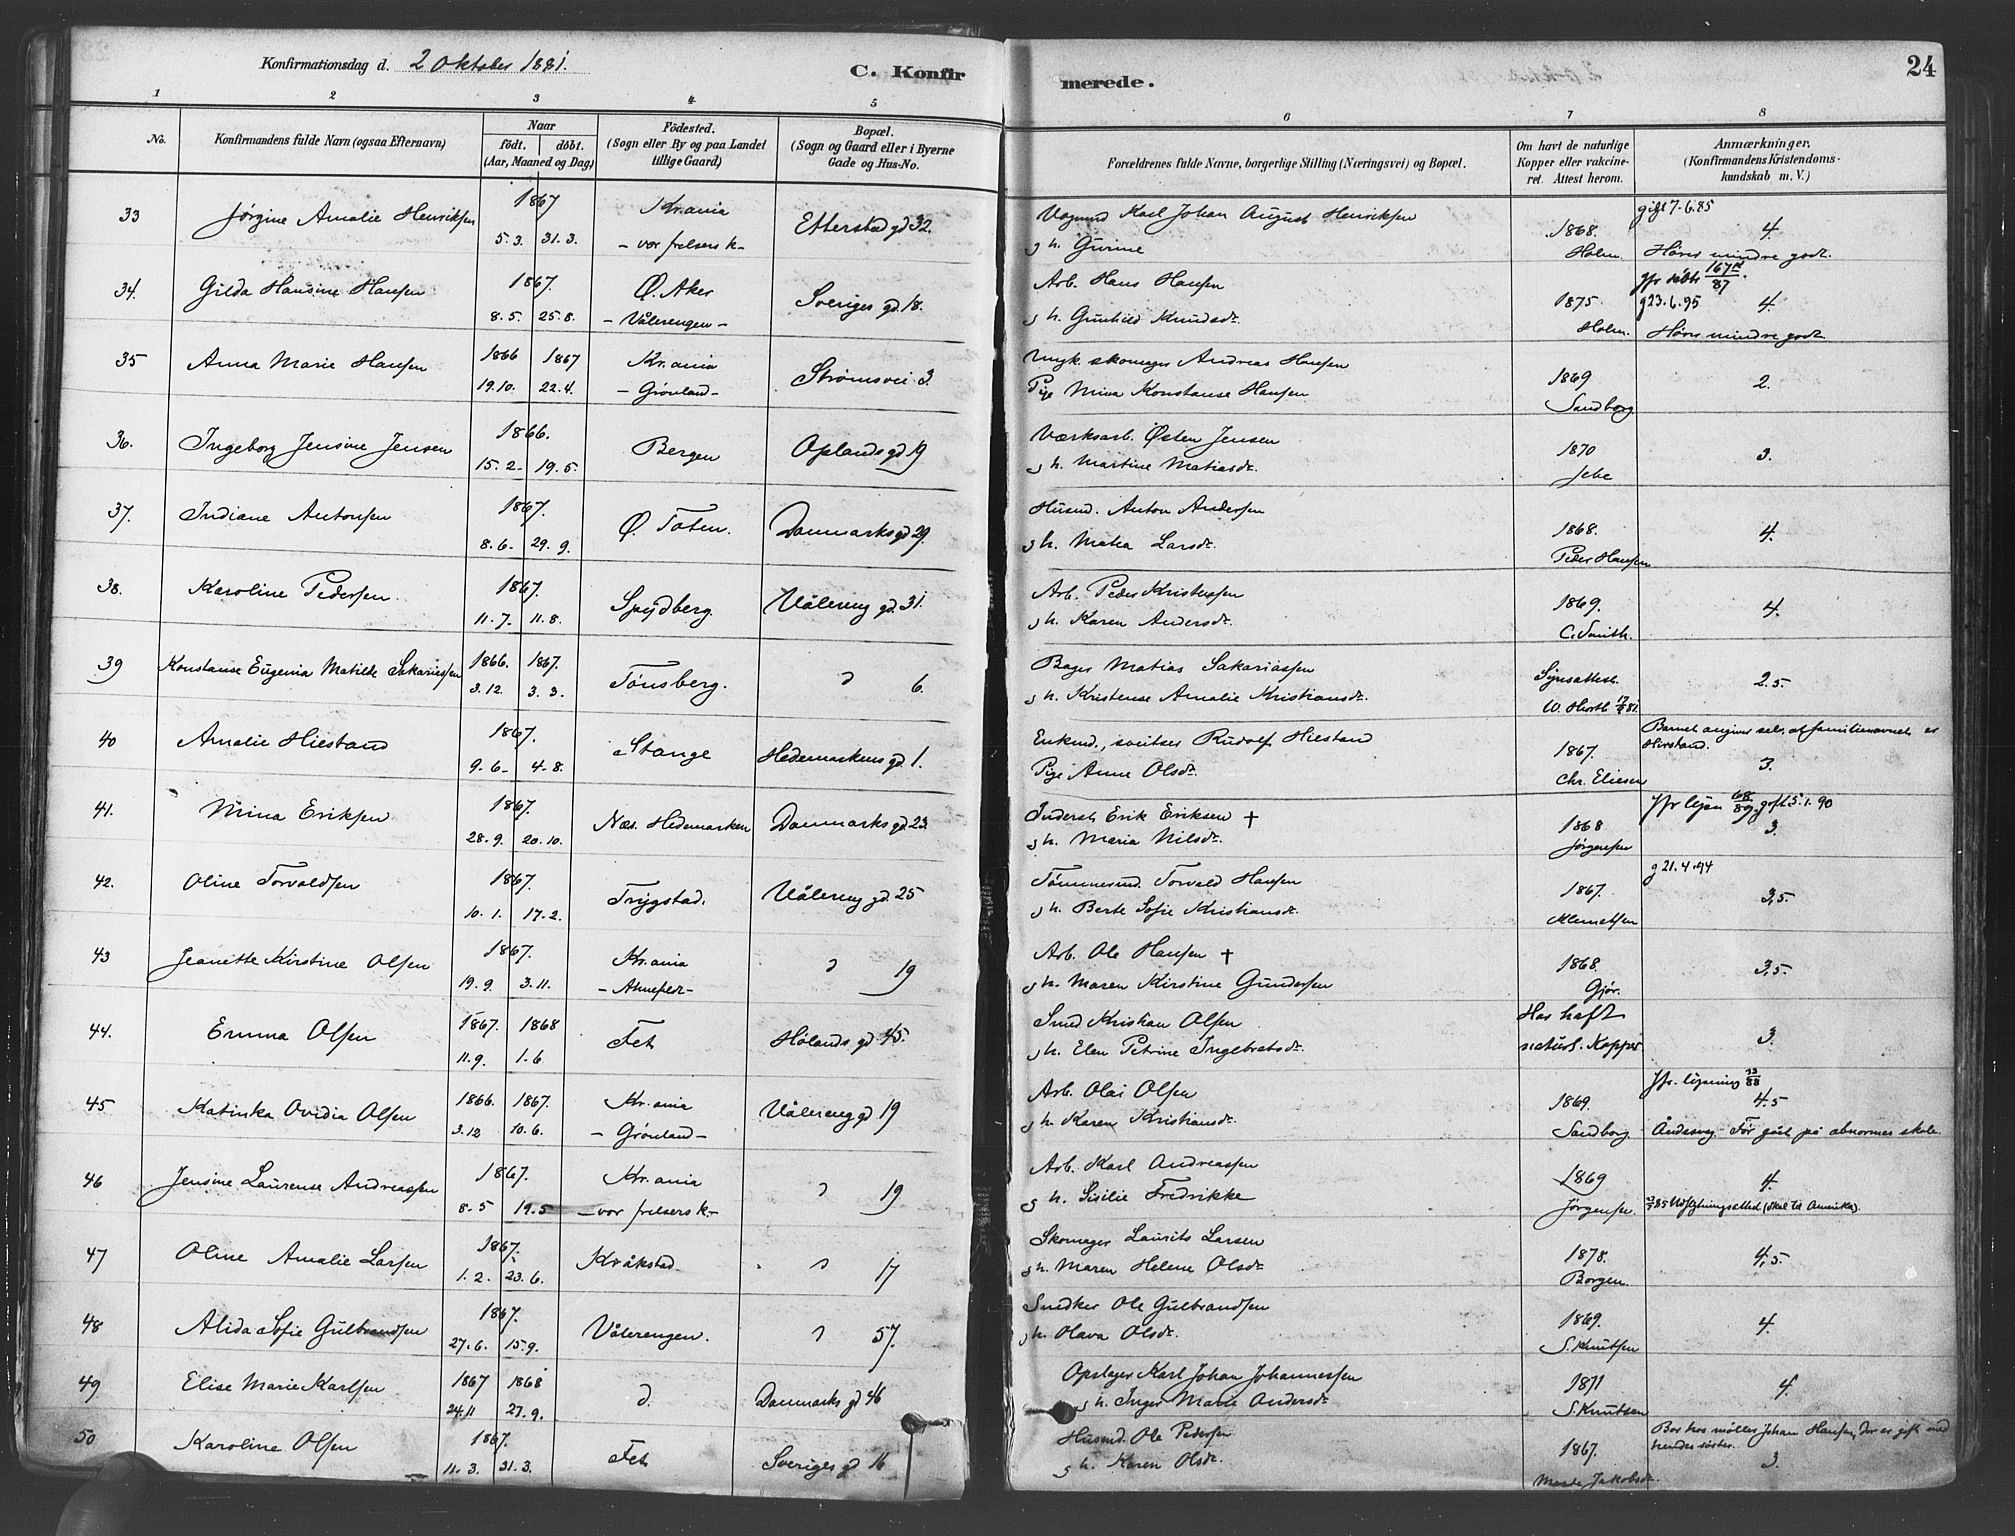 Konfirmationsdag d. 2 Oktober 1881.
C. Konfir
merede.
24
1 2 3 4 5 6 7 8
No.
Konfirmandens fulde Navn (ogsaa Efternavn)
Naar
födt. döbt.
(Aar, Maaned og Dag)
Födested.
(Sogn eller By og paa Landet
tillige Gaard)
Bopæl.
(Sogn og Gaard eller i Byerne
Gade og Hus-No.
Forældrenes fulde Navne, borgerlige Stilling (Næringsvei) og Bopæl.
Om havt de naturlige
Kopper eller vakcine-
ret. Attest herom.
Anmærkninger,
(Konfirmandens Kristendoms-
kundskab m. V.)
33 Jørgine Amalie Henriksen 1867 Kr.ania Etterstad gd 32. Vognmd Karl Johan August Henriksen 1868. gift 7-6.85 4.
5.3. 31.3. - vor frelsers k - g h. Holm. Hører mindre godt.
34. Gilda Hansine Hansen 1867. Ø. Aker Sveriges gd. 18. Arb. Hans Hansen 1875 g 23.6.95 4.
8.5. 25.8. - Vålerengen - g h. Gunhild Knudsdr. Holm. Hører mindre godt
35 Anna Marie Hansen 1866 1867 Kr.ania Strømsvei 3. Ungk. skomager Andreas Hansen 1869 2.
19.10. 22.4. - Grønland - Pige Mina Konstanse Hansen Sandborg
36. Ingeborg Jensine Jensen 1866. Bergen Oplands gd 19 Værksarb. Østen Jensen 1870 3.
15.2. 19.5. g h. Martine Matiasdr.
37. Indiane Antonsen 1867. Ø. Toten. Danmarks gd 29. Husmd. Anton Andersen 1868. 4.
8.6. 29.9. g h. Larsdr. Peder Hansen
38. Karoline Pedersen. 1867. Spydberg. Vålereng gd. 31. Arb. Peder Kristensen 1869. 4.
11.7. 11.8. g h. Karen Andersdr. C. Smith.
39 Konstanse Eugenia Matilde Sakariassen 1866. 1867. Tönsberg. d 6. Bager Matias Sakariassen Synsattest. 2.5.
3.12. 3.3. g h. Kristense Amalie Kristiansdr.
40 Amalie Hiestand 1867. Stange Hedemarkens gd. 1. Enkemd., sveitser Rudolf Hiestand 1867. Barnet angiver selv, at familienavnet er
Hirstand. 3.
9.6. 4.8. Pige Anne Olsdr. Chr. Eliesen
41. Mina Eriksen 1867. Næs. Hedemarken Danmarks gd. 23. Inderst Erik Eriksen † 1868 gift 5.1.90 3.
28.9. 20.10. g h. Maria Nilsdr. Jørgensen
42. Oline Torvaldsen 1867. Trygstad. Vålereng gd. 25 Tömmermd. Torvald Hansen 1867. g 21.4.94 3,5.
10.1. 17.2. g h. Berte Sofie Kristiansdr. Klemetsen
43 Jeanette Kirstine Olsen 1867. Kr.ania d 19 Arb. Ole Hansen † 1868. 3,5.
19.9. 3.11. g h. Maren Kirstine Gundersen Gjør.
44. Emma Olsen 1867. 1868 Fet Hölands gd 45. Smed Kristian Olsen Har haft 3.
11.9. 1.6. g h. Elen Petrine Ingebretsdr. naturl. Kopper.
45 Katinka Ovidia Olsen 1866. 1867. Kr.ania Vålereng gd 19 Arb. Olai Olsen 1869. Jfr. lysning 4.5
3.12 10.6. - Grönland - g h. Karen Kristiansdr. Sandborg. Åndssvag. Før gået på abnormes skole.
46 Jensine Laurense Andreassen 1867. Kr.ania d 19 Arb. Karl Andreassen 1869 4.
8.5 19.5 - vor frelsers k. - g h. Sisilie Fredrikke Jørgensen. Udflytningsattest (skal til Amerika).
47 Oline Amalie Larsen 1867. Kråkstad d 17 Skomager Laurits Larsen 1878. 4,5.
1.2. 23.6. g h. Maren Helene Olsdr. Borgen.
48 Alida Sofie Gulbrandsen 1867. Vålerengen. d 57. Snedker Ole Gulbrandsen 1869. 4.
27.6. 15.9. g h. Olava Olsdr. S. Knutsen
49 Elise Marie Karlsen 1867 1868 d. Danmarks gd 46 Opslager Karl Johan Johannessen 1871 4.
24.11 27.9. g h. Inger Marie Andersdr. S. Knutsen
50 Karoline Olsen 1867. Fet Sveriges gd 16 Husmd. Ole Pedersen 1867. Bor hos møller Johan Hansen, der er gift med
hendes søster. 3.
11.3. 31.3. g h. Karen Olsdr. Jakobsdr.